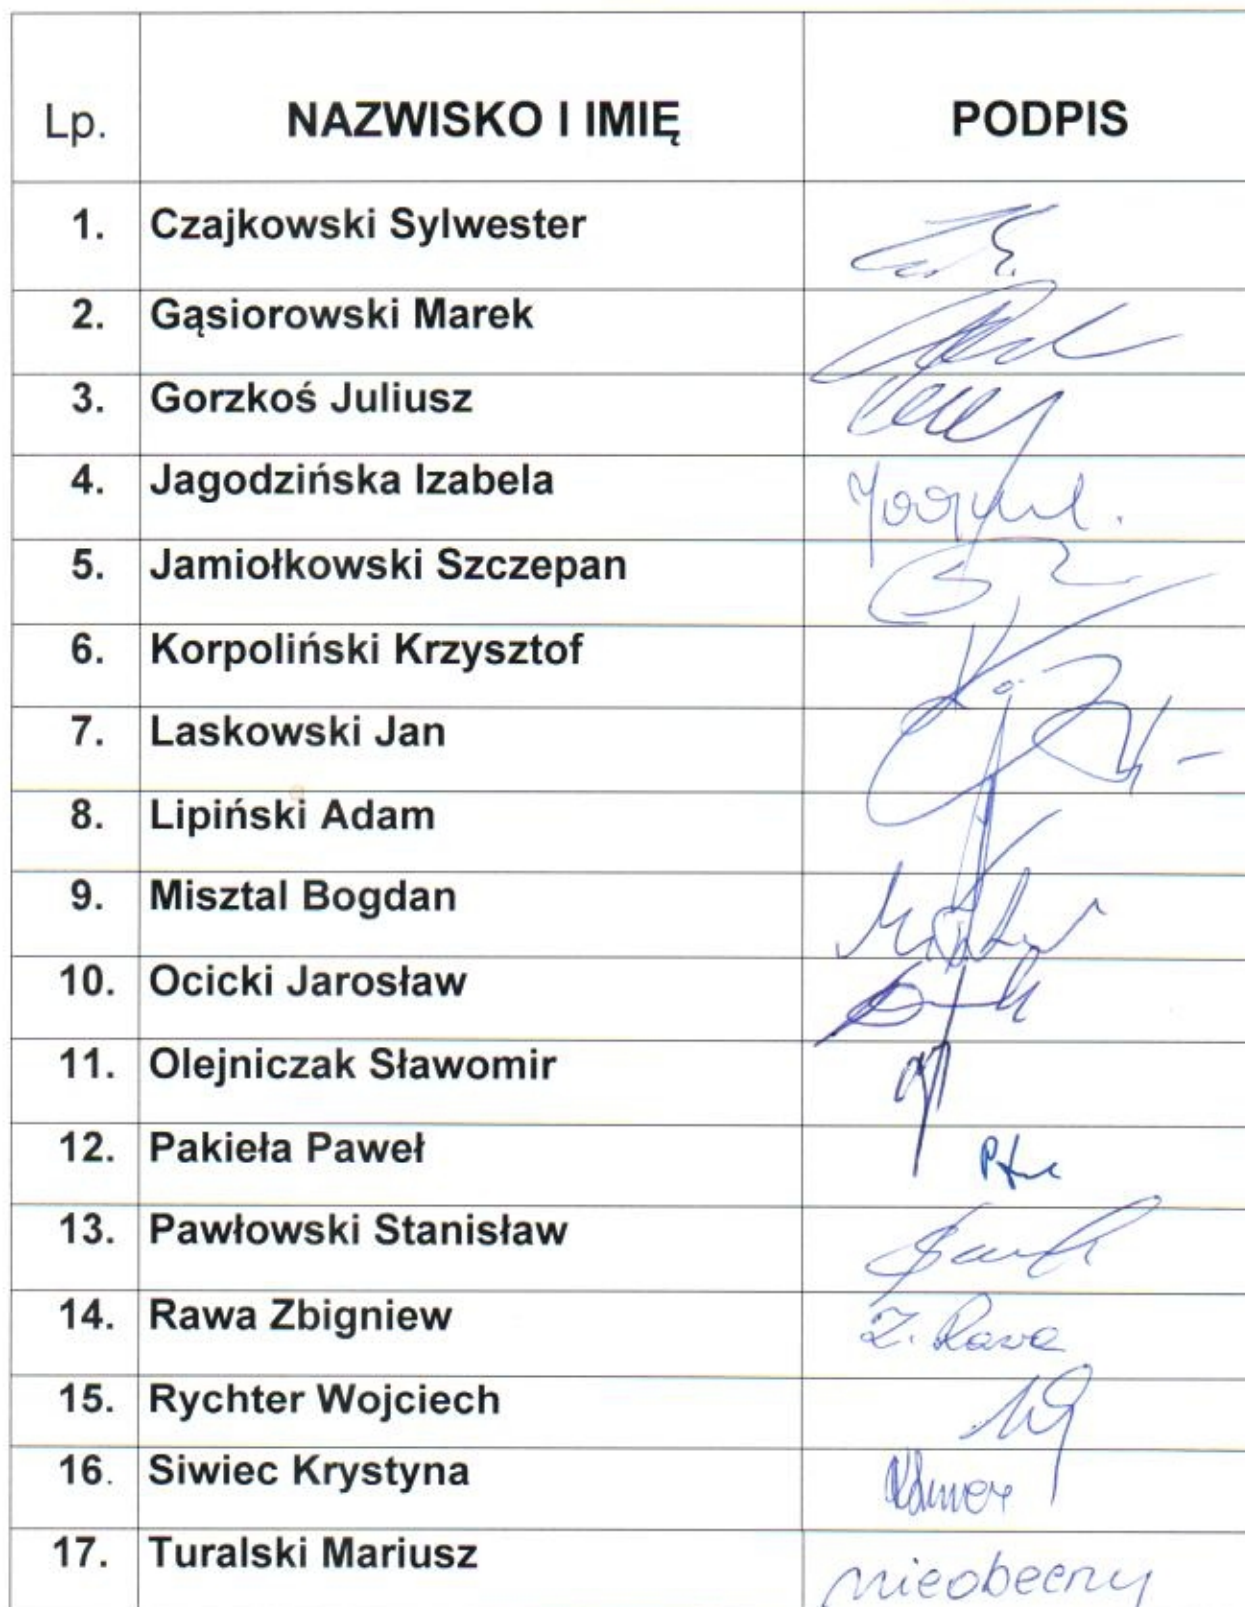 Lp. NAZWISKO I IMIĘ PODPIS
1. Czajkowski Sylwester
2. Gąsiorowski Marek
3. Gorzkoś Juliusz
4. Jagodzińska Izabela
5. Jamiołkowski Szczepan
6. Korpoliński Krzysztof
7. Laskowski Jan
8. Lipiński Adam
9. Misztal Bogdan
10. Ocicki Jarosław
11. Olejniczak Sławomir
12. Pakieła Paweł
13. Pawłowski Stanisław
14. Rawa Zbigniew Z. Rawa
15. Rychter Wojciech
16. Siwiec Krystyna
17. Turalski Mariusz nieobecny